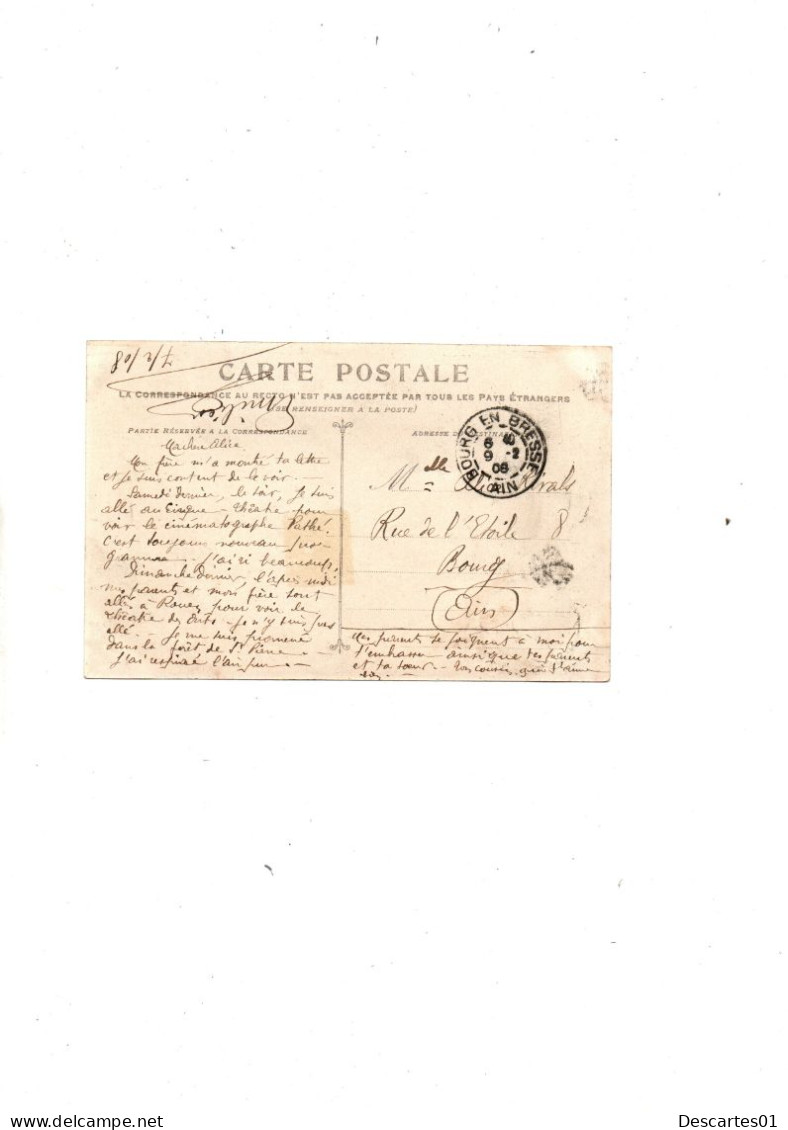 7/2/08
CARTE POSTALE
LA CORRESPONDANCE AU RECTO N'EST PAS ACCEPTÉE PAR TOUS LES PAYS ÉTRANGERS
(SE RENSEIGNER A LA POSTE)
PARTIE RÉSERVÉE A LA CORRESPONDANCE
ADRESSE DU DESTINATAIRE
BOURG EN BRESSE
9 -2
08
AIN
Ma chère Alice
Mon père m'a montré ta lettre
et je suis content de le voir.
Samedi dernier, le soir, je suis
allé au Cirque - théâtre pour
voir le cinématographe Pathé.
C'est toujours nouveau
J'ai ri beaucoup.
Dimanche dernier, l'après midi
mes parents et mon frère sont
allés à Rouen pour voir le
théâtre des Arts. Je n'y suis pas
allé. Je me suis promené
dans la forêt de St
J'ai respiré l'air pur.
Mlle
Rue de l'Etoile 8
Bourg
(Ain)
Mes parents se joignent à moi pour
t'embrasser ainsi que tes parents
et ta sœur. Ton cousin qui t'aime